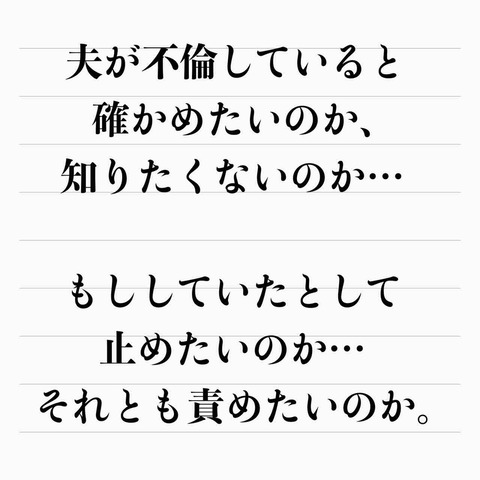 夫が不倫していると
確かめたいのか、
知りたくないのか…
もししていたとして
止めたいのか…
それとも責めたいのか。